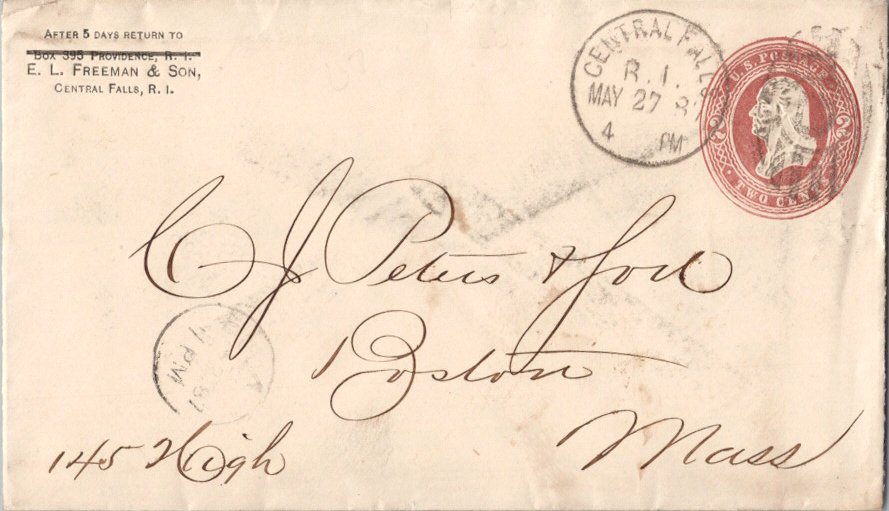 AFTER 5 DAYS RETURN TO
BOX 395 PROVIDENCE, R. I.
E. L. FREEMAN & SON,
CENTRAL FALLS, R. I.
CENTRAL FALLS
R. I.
MAY 27 87
4 PM
U.S. POSTAGE
2 2
TWO CENTS
C J Peters & Son
Boston
Mass
145 High
PM
87